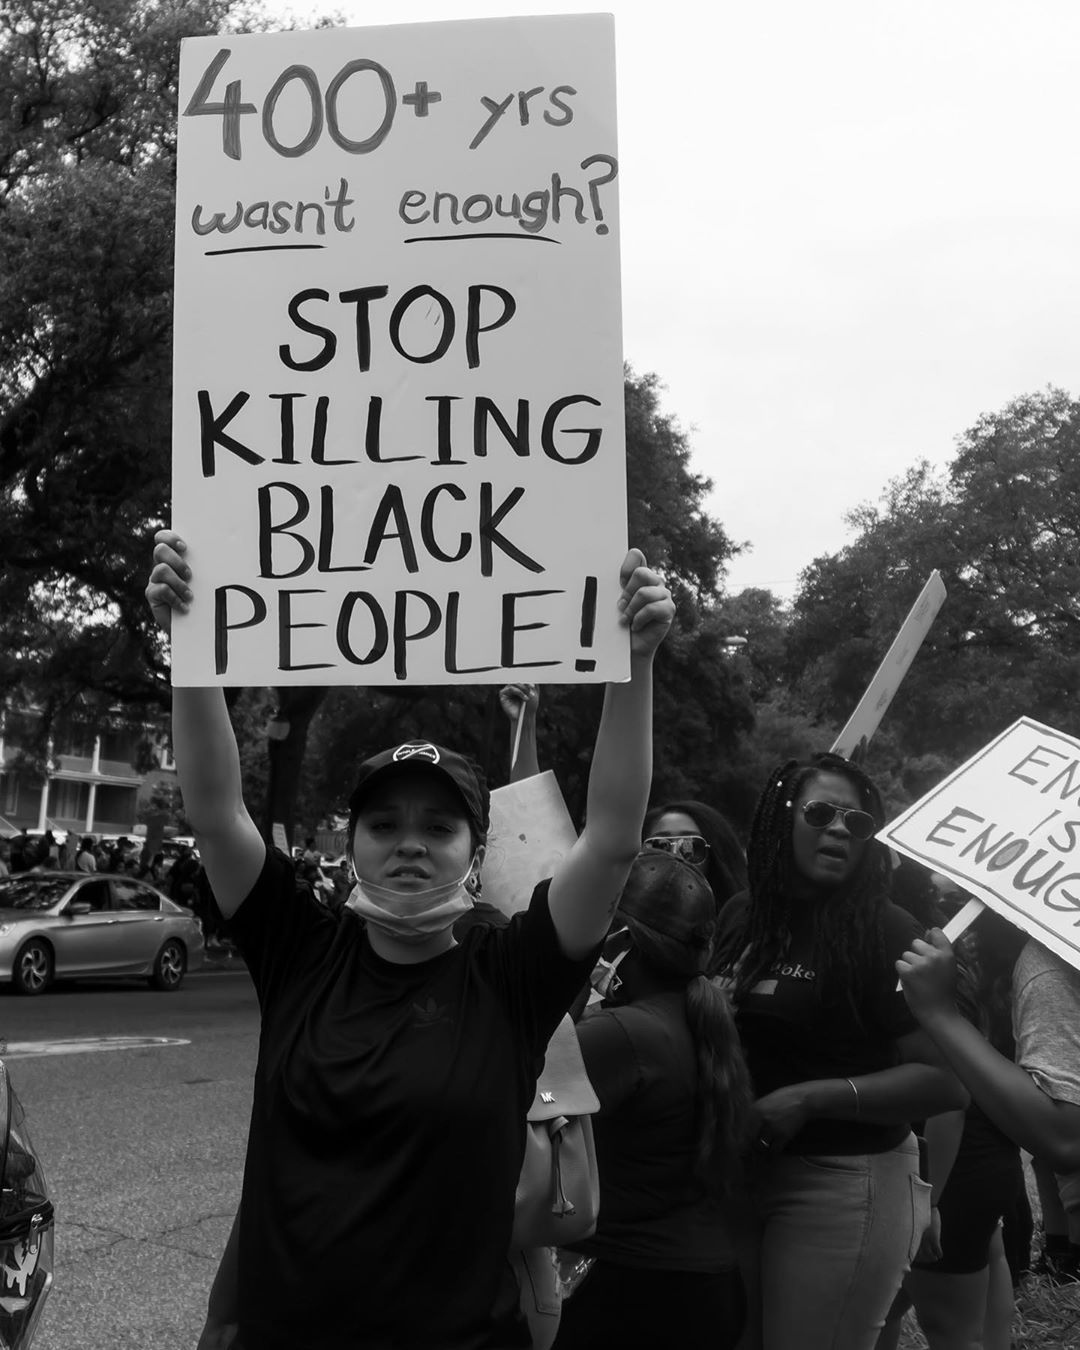 400+ yrs
wasn't enough?
STOP
KILLING
BLACK
PEOPLE!
IS
ENOUG
MK